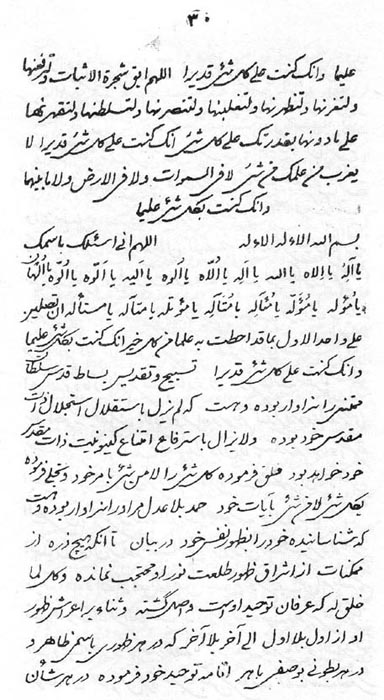 ٣٠
علیما وانک کنت علی کلشئ قدیرا اللهم ابق شجرة الاثبات وترفعنها
ولتعززنها ولتظهرنها ولتغلبنها ولتنصرنها ولتسلطنها ولتقهرنها
علی مادونها بقدرتک علی کلشئ انک کنت علی کلشئ قدیرا لا
یعزب من علمک من شئ لا فی السموات ولا فی الارض ولا مابینهما
وانک کنت بکل شئ علیما
بسم الله الاءله الاءله اللهم انی اسئلک باسمک
یا اله یا الله
علی واحد الاول بما قد احطت به علما من کل خیر انک کنت بکلشئ علیما
وانک کنت علی کلشئ قدیرا تسبیح و تقدیس بساط قدس سلطان
ممتنعی را سزاوار بوده وهست که لم یزل باستقلال استجلال ذات
مقدس خود بوده ولا یزال باسترفاع امتناع کینونیت ذات مقدس
خود خواهد بود خلق فرموده کلشئ را لا من شئ بامر خود و تجلی فرموده
بکلشئ لا من شئ بآیات خود حمد بلا عدل مر او را سزاوار بوده وهست
که شناسانیده خود را بظهور نفس خود در بیان تا آنکه هیچ ذره از
ممکنات از اشراق ظهور طلعت نور او محتجب نمانده وکل لما
خلق له که عرفان توحید اوست واصل گشته وثناء بر اعراش ظهور
او از اول بلا اول الی آخر بلا آخر که در هر ظهوری باسمی ظاهر و
در هر بطونی بوصفی باهر اقامه توحید خود فرموده در هر شأن